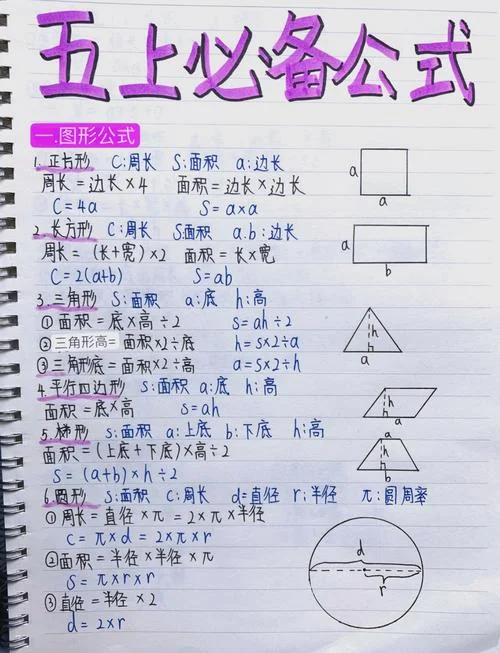 五上必备公式
一.图形公式
1.正方形 C:周长 S:面积 a:边长
周长=边长×4 面积=边长×边长
C=4a S=a×a
a
a
2.长方形 C:周长 S:面积 a.b:边长
周长=(长+宽)×2 面积=长×宽
C=2(a+b) S=ab
a
b
3.三角形 S:面积 a:底 h:高
①面积=底×高÷2 s=ah÷2
②三角形高=面积×2÷底 h=s×2÷a
③三角形底=面积×2÷高 a=s×2÷h
h
a
4.平行四边形 s:面积 a:底 h:高
面积=底×高 s=ah
h
a
5.梯形 s:面积 a:上底 b:下底 h:高
面积=(上底+下底)×高÷2
s=(a+b)×h÷2
a
h
b
6.圆形 s:面积 c:周长 d=直径 r:半径 π:圆周率
①周长=直径×π=2×π×半径
c=π×d=2×π×r
②面积=半径×半径×π
s=π×r×r
③直径=半径×2
d=2×r
d
r